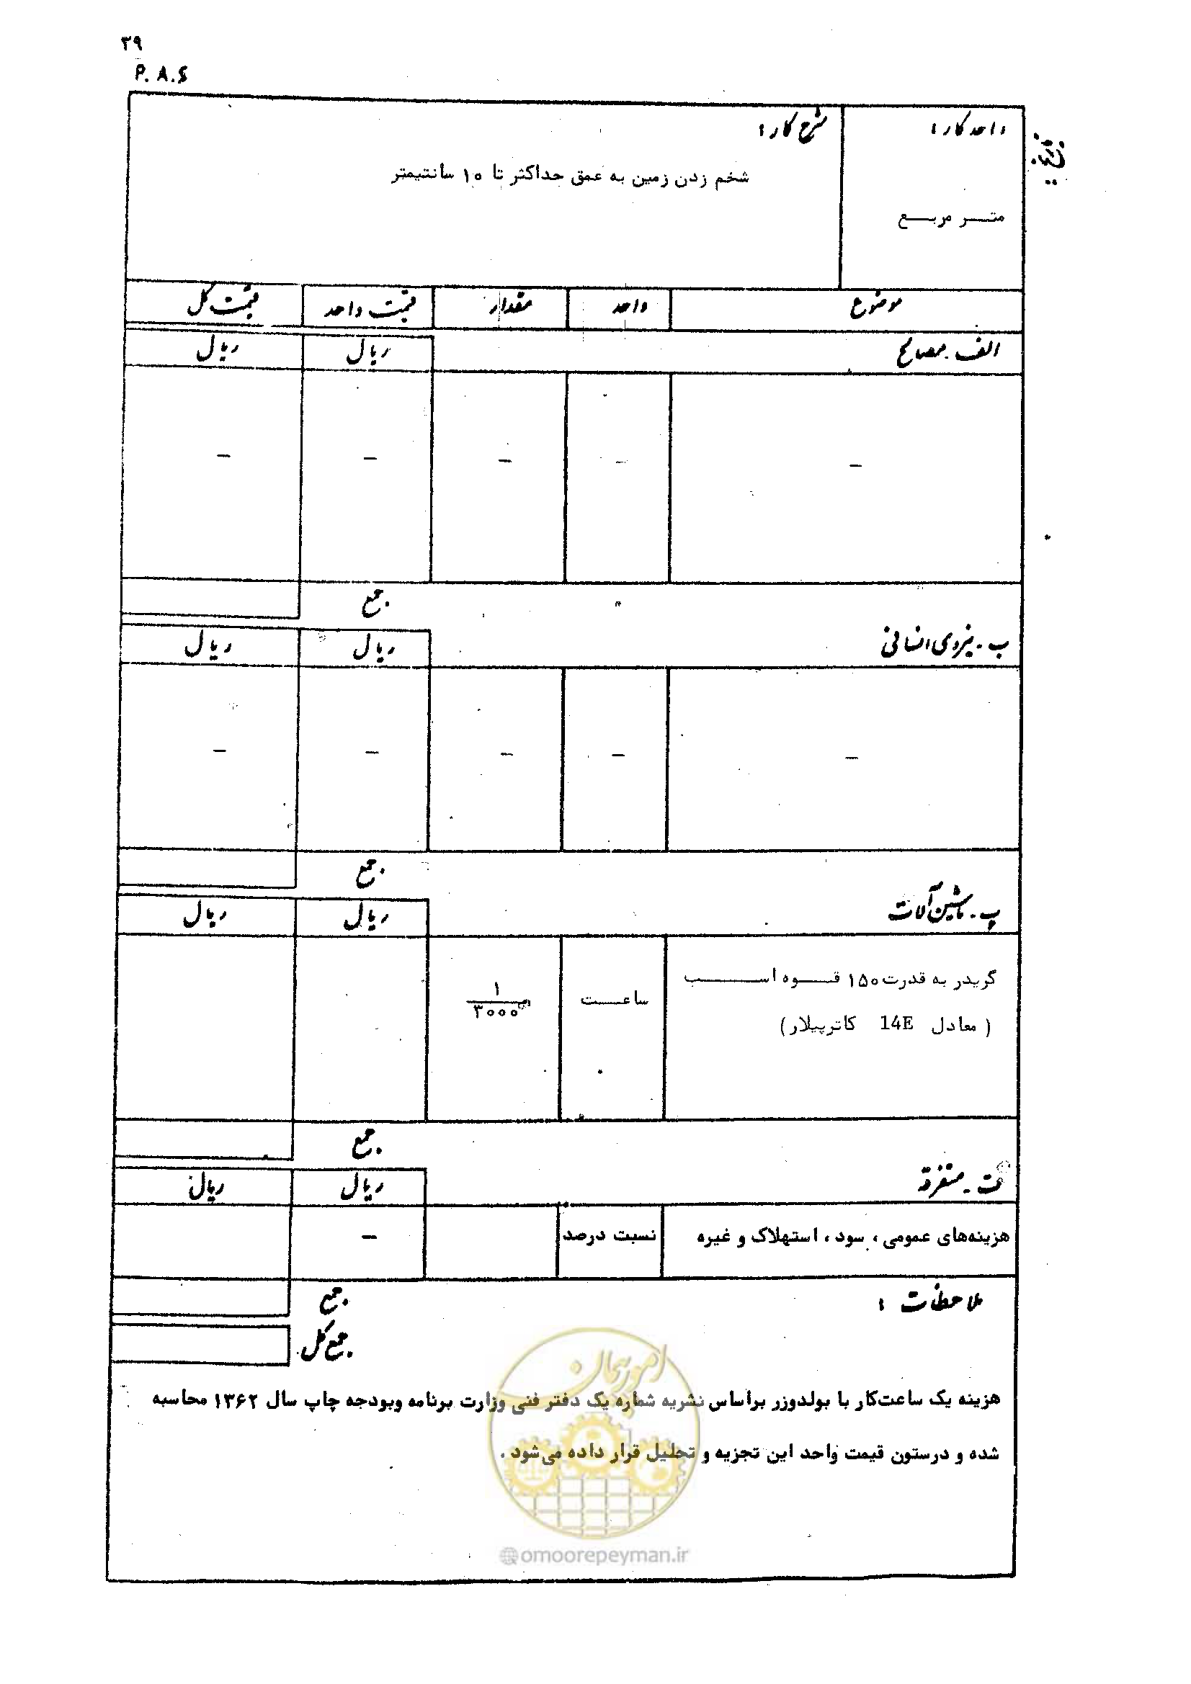 ۳۹
P.A.S
تاریخ :
واحد کار :
شرح کار :
شخم زدن زمین به عمق حداکثر تا ۱۰ سانتیمتر
متـــر مربــع
موضوع
واحد
مقدار
قیمت واحد
قیمت کل
الف ـ مصالح
ریال
ریال
—
—
—
—
—
جمع
ب ـ نیروی انسانی
ریال
ریال
—
—
—
—
—
جمع
پ ـ ماشین آلات
ریال
ریال
گریدر به قدرت ۱۵۰ قـــوه اســـب
ساعـــت
۱
۳۰۰۰
( معادل 14E کاترپیلار)
جمع
ت ـ متفرقه
ریال
ریال
هزینه‌های عمومی ، سود ، استهلاک و غیره
نسبت درصد
—
جمع
ملاحظات :
جمع کل
هزینه یک ساعت‌کار با بولدوزر براساس نشریه شماره یک دفتر فنی وزارت برنامه وبودجه چاپ سال ۱۳۶۲ محاسبه
شده و درستون قیمت واحد این تجزیه و تحلیل قرار داده می‌شود .
امور پیمان
@omoorepeyman.ir